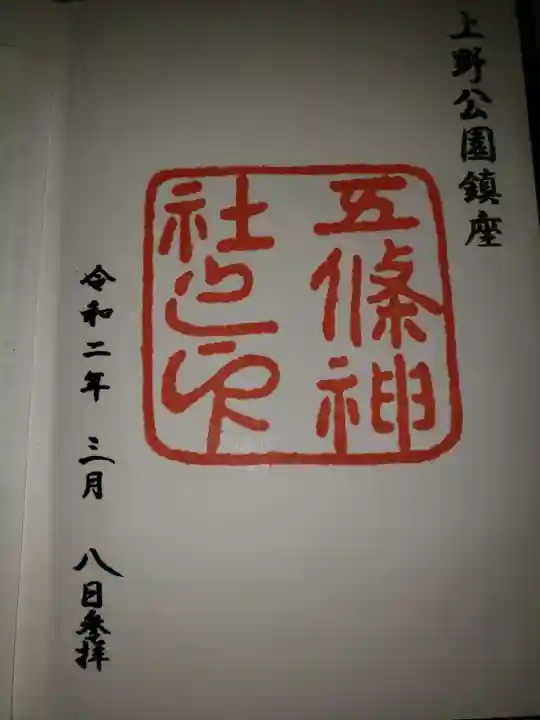 上野公園鎮座
五條神
社之印
令和二年 三月 八日参拝